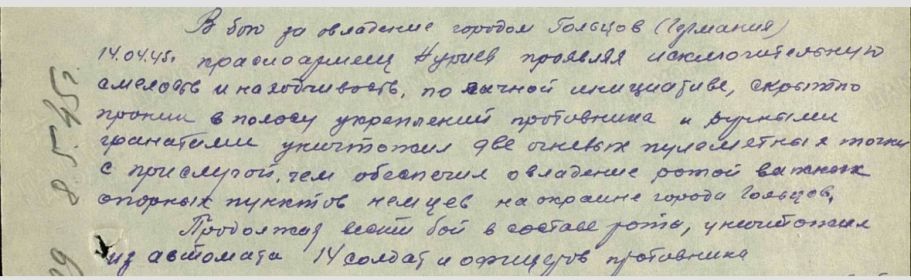 В бою за овладение городом Гольцов (Германия)
14.04.45г. красноармеец Нуриев проявляя исключительную
смелость и находчивость, по личной инициативе, скрытно
проник в полосу укреплений противника и ручными
гранатами уничтожил две огневых пулеметных точки
с прислугой, чем обеспечил овладение ротой важных
опорных пунктов немцев на окраине города Гольцов.
Продолжая вести бой в составе роты, уничтожил
из автомата 14 солдат и офицеров противника
8.5.45г.